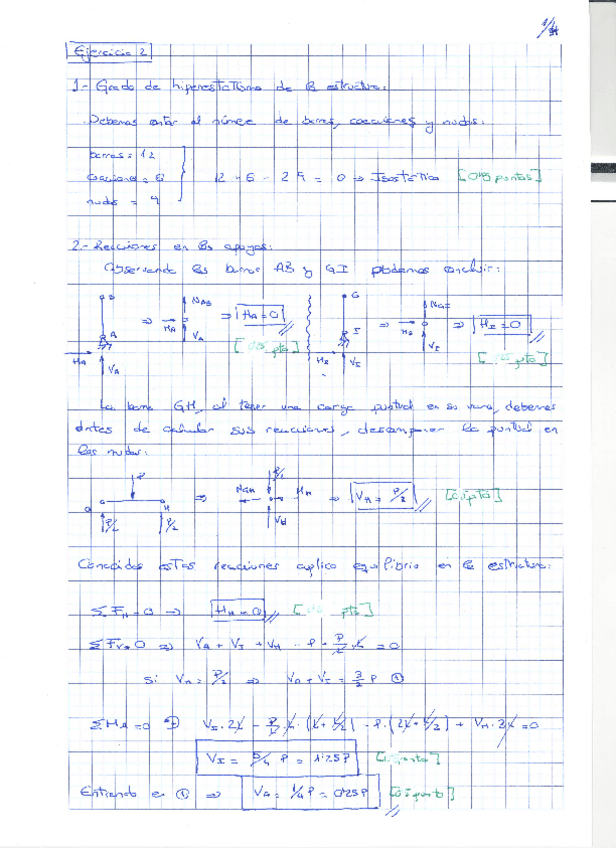 Ejercicio 2
1.- Grado de hiperestatismo de la estructura:
Debemos contar el número de barras, coacciones y nudos:
barras = 12
coacciones = 6
nudos = 9
12 + 6 - 2·9 = 0 ⇒ Isostática
2.- Reacciones en los apoyos:
Observando las barras AB y GI podemos concluir:
B A H_A V_A ⇒ N_AB H_A V_A ⇒ H_A = 0
G I H_I V_I ⇒ N_GI H_I V_I ⇒ H_I = 0
La barra GH, al tener una carga puntual en su vano, debemos
antes de calcular sus reacciones, descomponer la puntual en
los nudos:
P G H P/2 P/2 ⇒ P/2 N_GH H_H V_H ⇒ V_H = P/2
Conocidas estas reacciones aplico equilibrio en la estructura:
ΣF_H = 0 ⇒ H_H = 0
ΣF_V = 0 ⇒ V_A + V_I + V_H - P - P/L · L = 0
Si V_H = P/2 ⇒ V_A + V_I = 3/2 P ①
ΣM_A = 0
V_I = 5/4 P = 1'25P
Entrando en ① ⇒ V_A = 1/4 P = 0'25P